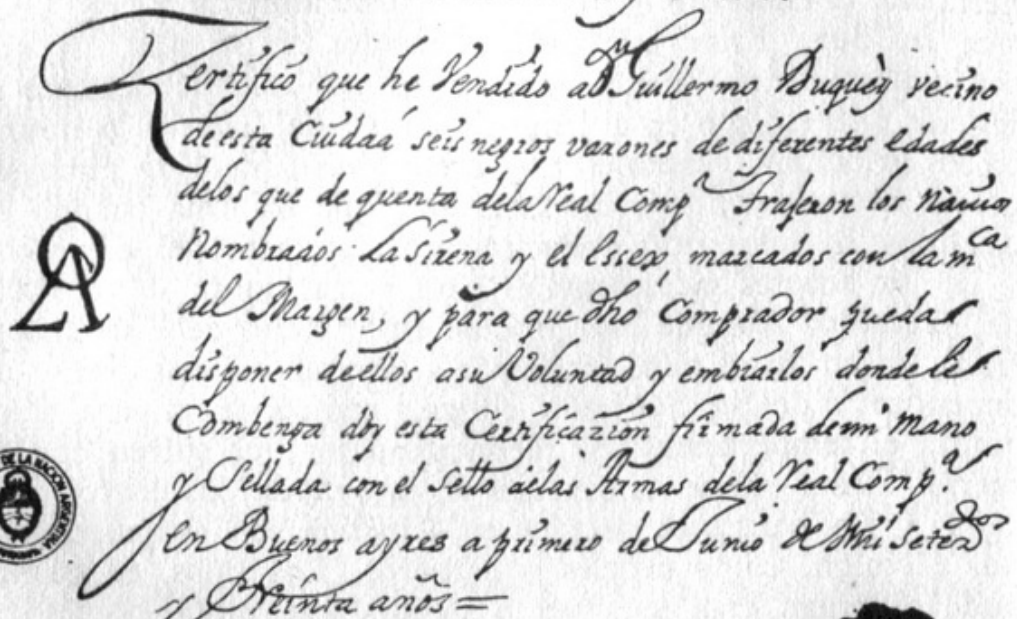 Certifico que he Vendido a Dn Guillermo Duquèy vecino
de esta Ciudad seis negros varones de diferentes edades
delos que de quenta dela Real Compa. Trajeron los Navios
Nombrados La Sirena y el Essex marcados con la mca
del Margen, y para que dho Comprador pueda
disponer deellos asu Voluntad y embiarlos donde le
Combenga doy esta Certificazion firmada demi Mano
y Sellada con el Sello delas Armas dela Real Compa.
En Buenos ayres a primero de Junio de Mil Setezdos
y Treinta años =
DE LA NACION ARGENTINA